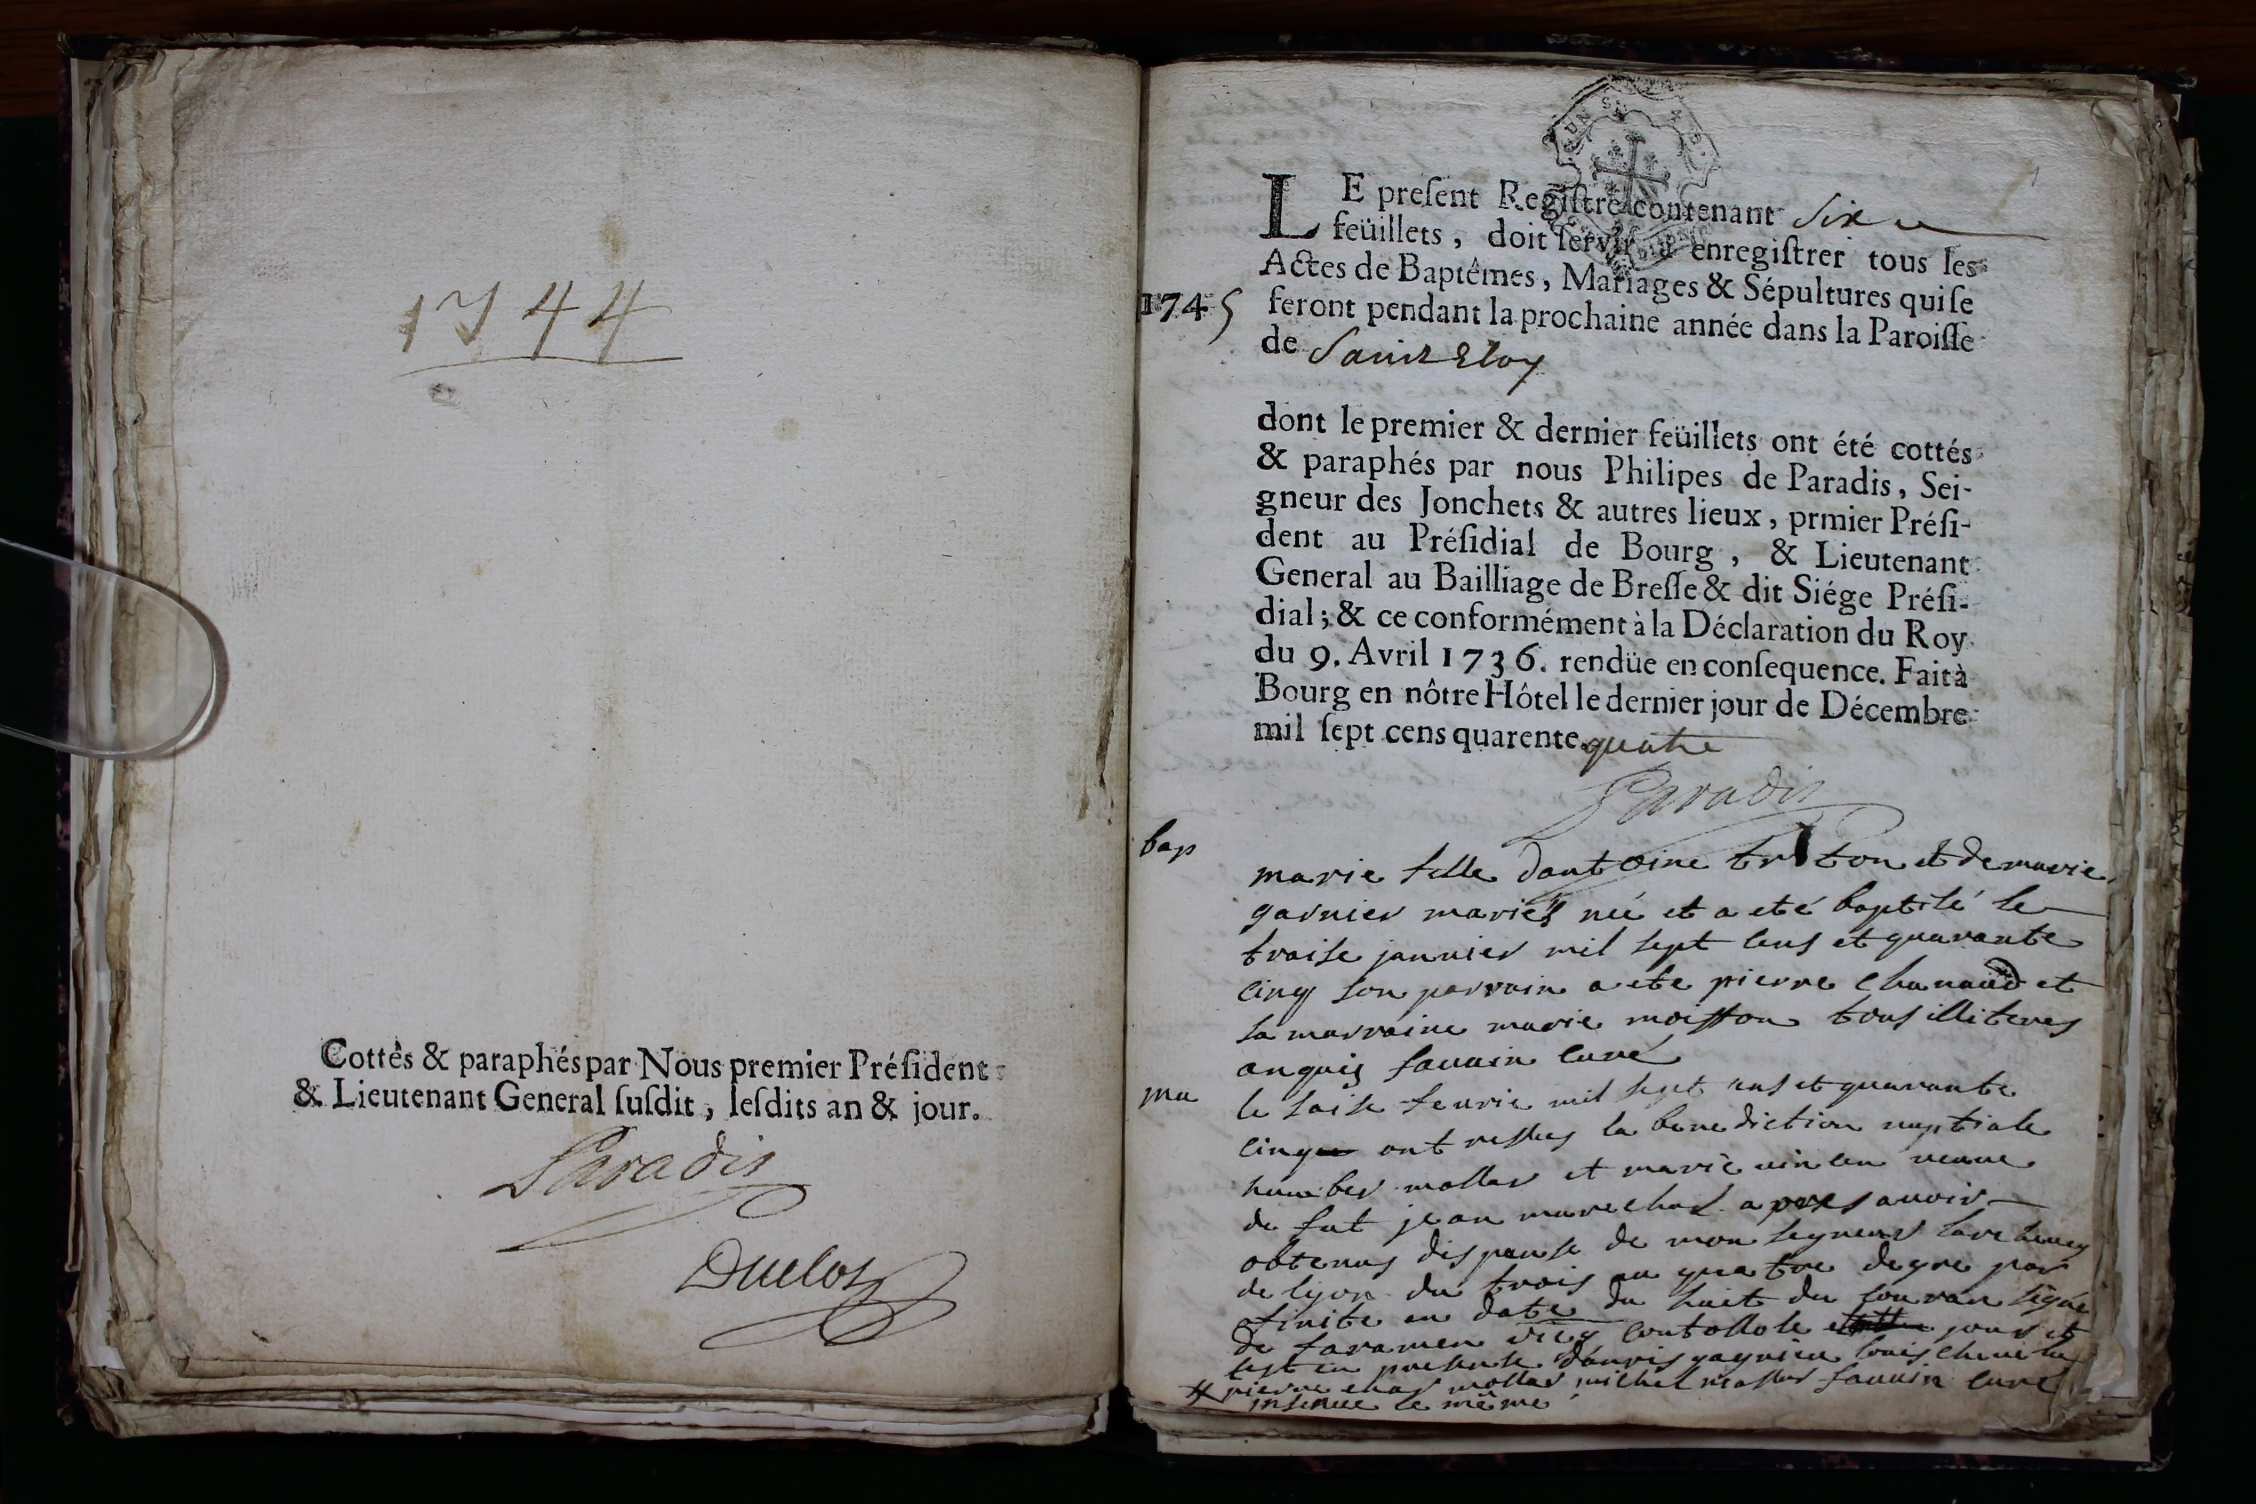 1744
Cottés & paraphés par Nous premier Préſident
& Lieutenant General ſuſdit, leſdits an & jour.
Paradis
Duclos
LE preſent Regiſtre contenant Six
feüillets, doit ſervir à enregiſtrer tous les
Actes de Baptêmes, Mariages & Sépultures qui ſe
1745
feront pendant la prochaine année dans la Paroiſſe
de Saint Eloy
dont le premier & dernier feüillets ont été cottés
& paraphés par nous Philipes de Paradis, Sei-
gneur des Jonchets & autres lieux, prmier Préſi-
dent au Préſidial de Bourg, & Lieutenant
General au Bailliage de Breſſe & dit Siége Préſi-
dial; & ce conformément à la Déclaration du Roy
du 9. Avril 1736. rendüe en conſequence. Fait à
Bourg en nôtre Hôtel le dernier jour de Décembre
mil ſept cens quarente quatre
Paradis
bap
marie fille dantoine et de marie
garnier mariés née et a eté baptisé le
traise janvier mil sept cens et quarante
cinq son parrain a ete pierre chanaud et
sa marraine marie moisson tous illiteres
anquis fauuin curé
ma
le saise feurie mil sept cens et quarante
cinq ont ressus la benediction nuptiale
humber mollar et marie uincen ueuue
de fut jean marechal apres auoir
obtenus dispanse de mon segneur larcheueq
de lyon du trois au quatre degre par
afinite en date du huit du couran signe
de faramen uieg contollole jour et
test en presense
pierre char mollar michel mollar fauuin curé
# insinue le même